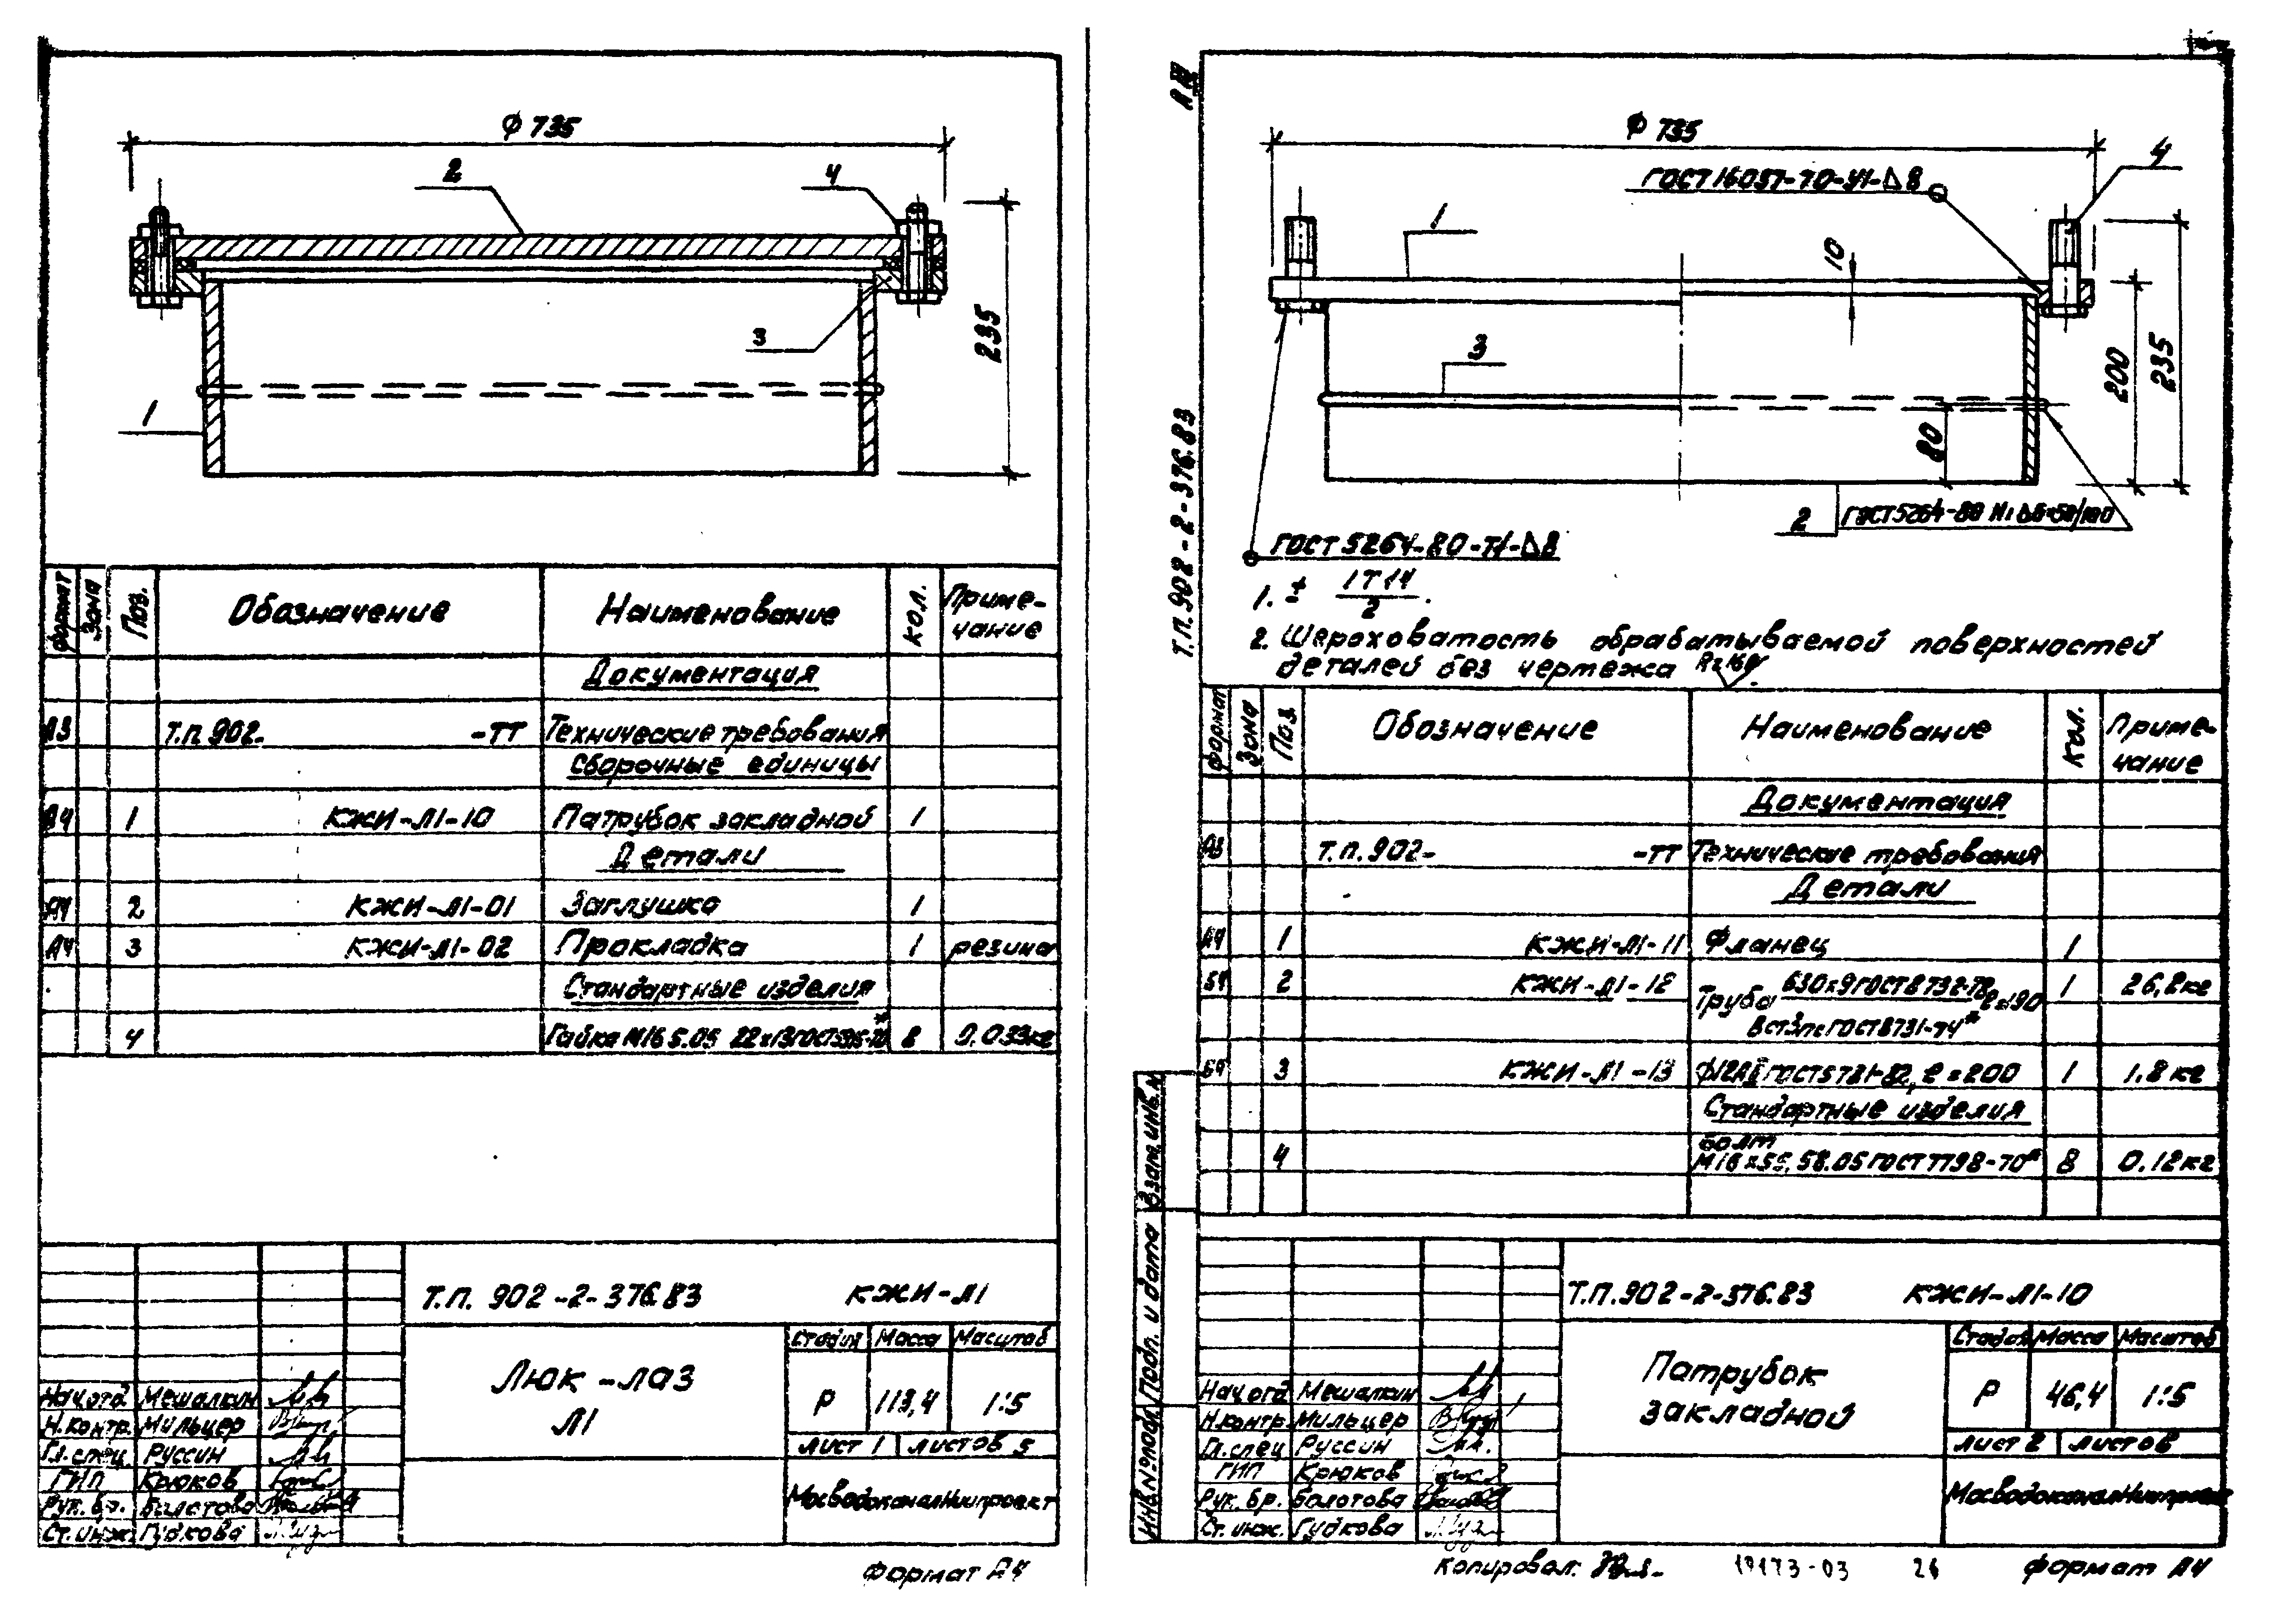 Ф 735
2
4
3
1
235
Формат
Зона
Поз.
Обозначение
Наименование
Кол.
Приме-
чание
Документация
А3 Т.П. 902- -ТТ Технические требования
Сборочные единицы
А4 1 КЖИ-Л1-10 Патрубок закладной 1
Детали
А4 2 КЖИ-Л1-01 Заглушка 1
А4 3 КЖИ-Л1-02 Прокладка 1 резина
Стандартные изделия
4 Гайка М16 5.05 8 0.033кг
Т.П. 902-2-376.83 КЖИ-Л1
Люк-лаз
Л1
Стадия Масса Масштаб
Р 113,4 1:5
Лист 1 Листов 5
МосводоканалНИИпроект
Нач.отд. Мешалкин
Н.контр. Мильцер
Гл.спец. Руссин
ГИП Крюков
Рук.бр. Болотова
Ст.инж. Гудкова
Формат А4
Т.П. 902-2-376.83
Ф 735
ГОСТ 16037-70-У1-Δ8
4
1
10
3
200
235
80
2
ГОСТ 5264-80 Н1 Δ6-50/100
ГОСТ 5264-80-Т1-Δ8
1. ± IT14
2
2. Шероховатость обрабатываемой поверхностей
деталей без чертежа Rz160
Формат
Зона
Поз.
Обозначение
Наименование
Кол.
Приме-
чание
Документация
А3 Т.П. 902- -ТТ Технические требования
Детали
А4 1 КЖИ-Л1-11 Фланец 1
БЧ 2 КЖИ-Л1-12 Труба 630х9 ГОСТ 8732-78 ℓ=190 1 26,2кг
ВСт3пс ГОСТ 8731-74*
БЧ 3 КЖИ-Л1-13 ф12АII ГОСТ 5781-82, ℓ=200 1 1.8 кг
Стандартные изделия
Болт
4 М16х55.58.05 ГОСТ 7798-70* 8 0.12кг
Взам.инв.N
Подп. и дата
Инв.№подл.
Т.П. 902-2-376.83 КЖИ-Л1-10
Патрубок
закладной
Стадия Масса Масштаб
Р 46,4 1:5
Лист 2 Листов
МосводоканалНИИпроект
Нач.отд. Мешалкин
Н.контр. Мильцер
Гл.спец. Руссин
ГИП Крюков
Рук.бр. Болотова
Ст.инж. Гудкова
Копировал: 19173-03 26 Формат А4